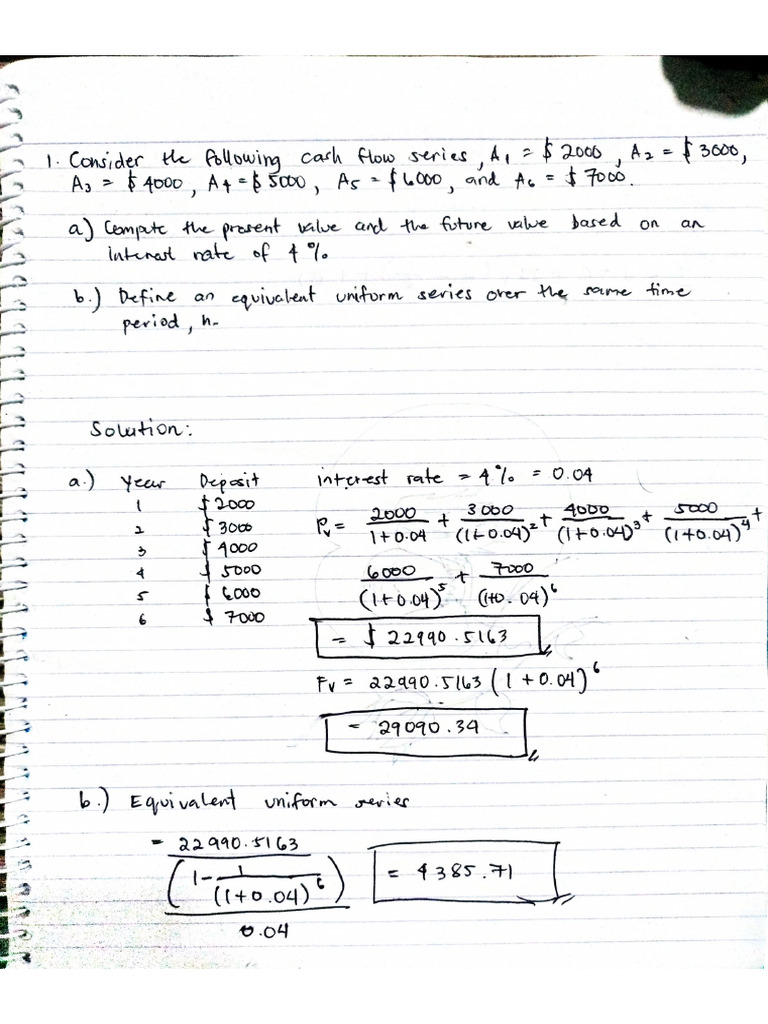 1. Consider the following cash flow series, A1 = $ 2000, A2 = $ 3000,
A3 = $ 4000, A4 = $ 5000, A5 = $ 6000, and A6 = $ 7000.
a) Compute the present value and the future value based on an
interest rate of 4%.
b.) Define an equivalent uniform series over the same time
period, n.
Solution:
a.) Year Deposit interest rate = 4% = 0.04
1 $ 2000
2 $ 3000
3 $ 4000
4 $ 5000
5 $ 6000
6 $ 7000
Pv = 2000/(1+0.04) + 3000/(1+0.04)^2 + 4000/(1+0.04)^3 + 5000/(1+0.04)^4 +
6000/(1+0.04)^5 + 7000/(1+0.04)^6
= $ 22990.5163
Fv = 22990.5163 (1 + 0.04)^6
= 29090.34
b.) Equivalent uniform series
= 22990.5163 / ((1 - 1/(1+0.04)^6) / 0.04) = 4385.71